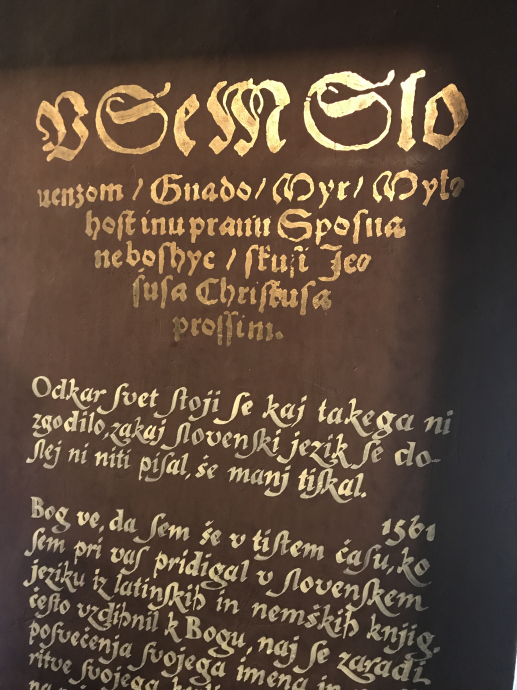 VSeM Slo
uenzom / Gnado / Myr / Mylo
hoſt inu prauu Sposna
ne boshyc / skuſi Jeo
ſuſa Chriſtuſa
proſſim.
Odkar ſvet ſtoji ſe kaj takega ni
zgodilo, zakaj ſlovenſki jezik ſe do-
ſlej ni niti piſal, še manj tiſkal.
1561
Bog ve, da ſem še v tiſtem čaſu, ko
ſem pri vaſ pridigal v ſlovenſkem
jeziku iz latinſkih in nemških knjig,
čeſto vzdihnil k Bogu, naj ſe zaradi
poſvečenja ſvojega imena in
ritve ſvojega